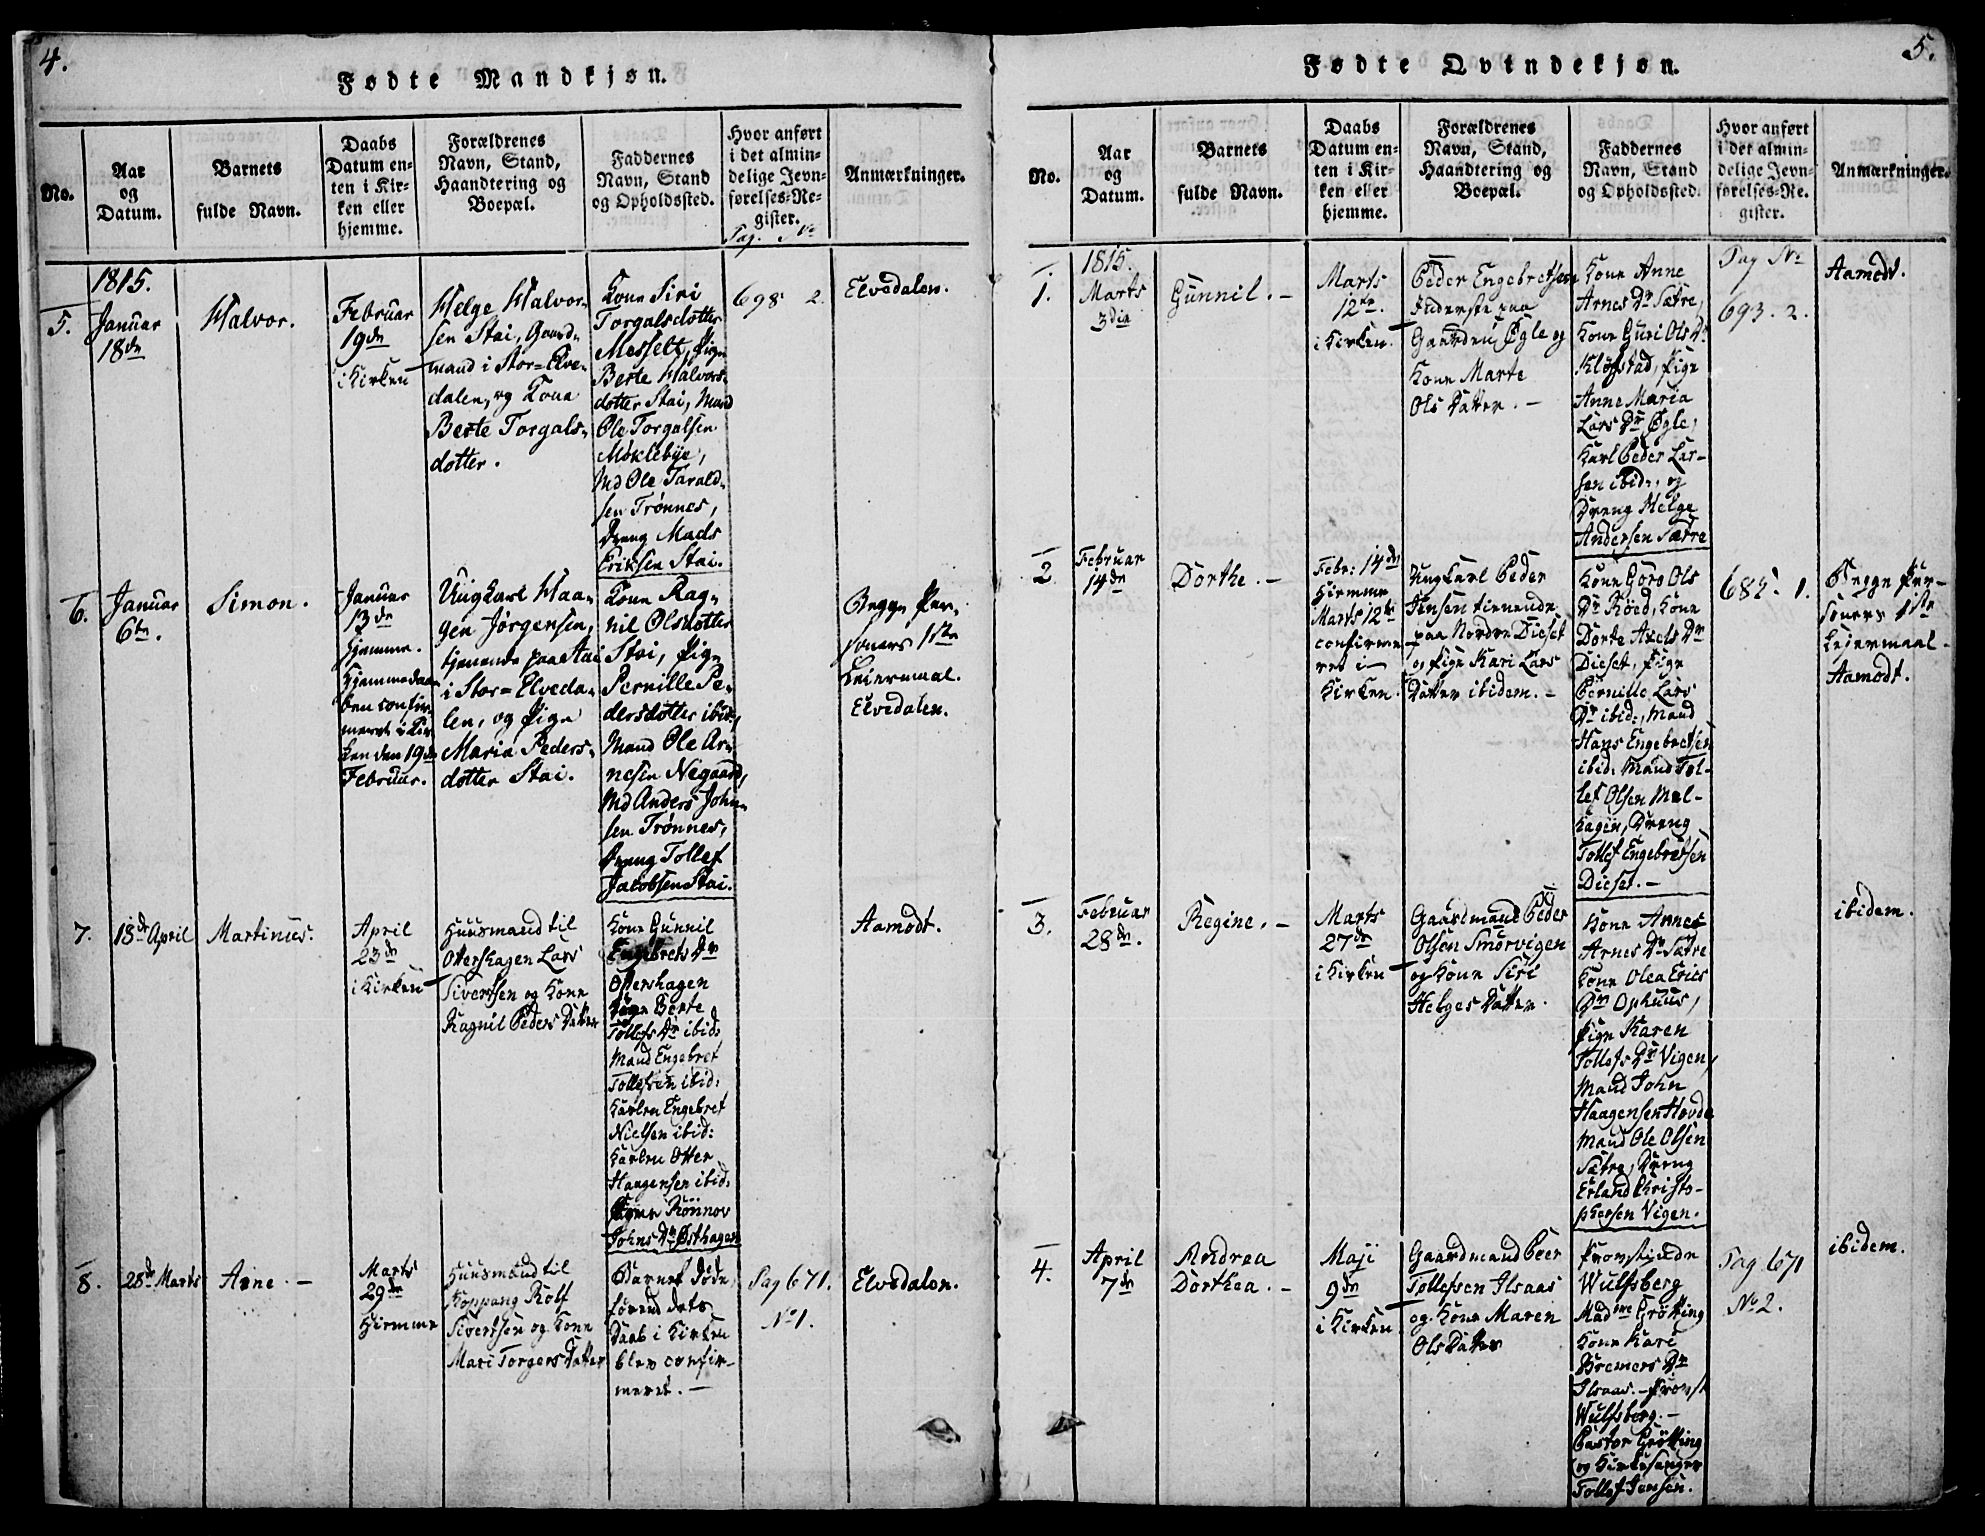 4.
Fødte Mandkjøn.
No.
Aar
og
Datum.
Barnets
fulde Navn.
Daabs
Datum en-
ten i Kir-
ken eller
hjemme.
Forældrenes
Navn, Stand,
Haandtering og
Boepæl.
Faddernes
Navn, Stand
og Opholdssted.
Hvor anført
i det almin-
delige Jevn-
førelses-Re-
gister.
Pag. No
Anmærkninger.
1815.
5.
Januar
18de
Halvor.
Februar
19de
i Kirken
Helge Halvor-
sen Stai, Gaard-
mand i Stor-Elve-
dalen, og Kone
Berte Torgals-
dotter.
Kone Siri
Torgalsdotter
Messelt, Pige
Berte Halvors-
dotter Stai, Mand
Ole Torgalsen
Møklebye,
Md Ole Tarald-
sen Trønnes,
Dreng Mads
Eriksen Stai.
698 2.
Elvedalen.
6.
Januar
6te.
Simon.
Januar
13de
hjemme.
Hjemmedaa-
ben confir-
meret i Kir-
ken den 19de
Februar.
Ungkarl Haa-
gen Jørgensen,
tjenende paa Stai
i Stor-Elveda-
len, og Pige
Maria Peders-
dotter Stai.
Kone Rag-
nil Olsdotter
Stai, Pige
Pernille Pe-
dersdotter ibid.,
Mand Ole Ar-
nesen Negaard,
Md Anders John-
sen Trønnes,
Dreng Tollef
Jacobsen Stai.
Begge Per-
soners 1ste
Leiermaal.
Elvedalen.
7.
18de April
Martinus.
April
23de
i Kirken
Huusmand til
Ottershagen Lars
Sivertsen og Kone
Ragnil Peders Datter
Kone Gunnil
Engebrets Dr
Ottershagen
Pige Berte
Tollefs Dr ibid:
Mand Engebret
Tollefsen ibid:
Karlen Engebret
Nielsen ibid:
Karlen Otter
Haagensen ibid:
Pigen Rönnov
Johns Dr Østhagen
Aamodt.
8.
28de Marts
Arne. -
Marts
29de
Hiemme
Huusmand til
Koppang Rolf
Sivertsen og Kone
Mari Torgers Datter
Barnet døde,
førend dets
Daab i Kirken
blev confir-
meret. -
Pag 671.
No 1.
Elvedalen.
5.
Fødte Qvindekjøn.
No.
Aar
og
Datum.
Barnets
fulde Navn.
Daabs
Datum en-
ten i Kir-
ken eller
hjemme.
Forældrenes
Navn, Stand,
Haandtering og
Boepæl.
Faddernes
Navn, Stand
og Opholdssted.
Hvor anført
i det almin-
delige Jevn-
førelses-Re-
gister.
Anmærkninger.
1815.
1.
Marts
3die
Gunnil. -
Marts
12te.
i Kirken
Peder Engebretsen
Inderste paa
Gaarden Øgle og
Kone Marte
Ols Datter. -
Kone Anne
Arnes Dr Sætre,
Kone Guri Ols Dr
Kløfstad, Pige
Anne Maria
Lars Dr Øgle,
Karl Peder Lar-
sen ibid:, og
Dreng Helge
Andersen Sætre
Pag No
693. 2.
Aamodt.
2.
Februar
14de
Dorthe. -
Febr: 14de
Hiemme
Marts 12te
confirme-
ret i
Kirken.
Ungkarl Peder
Jensen tienende
paa Nordre Dieset
og Pige Kari Lars
Datter ibidem. -
Kone Goro Ols
Dr Röed, Kone
Dorte Axels Dr
Dieset, Pige
Pernille Lars
Dr ibid:, Mand
Hans Engebretsen
ibid: Mand Tol-
lef Olsen Mel-
hagen, Dreng
Tollef Engebretsen
Dieset. -
685. 1.
Begge Per-
soners 1ste
Leiermaal -
Aamodt.
3.
Februar
28de.
Regine. -
Marts
27de
i Kirken
Gaardmand Peder
Olsen Smørvigen
og Kone Siri
Helges Datter.
Kone Anne
Arnes Dr Sætre
Kone Olea Erics
Dr Ophuus,
Pige Karen
Tollefs Dr Vigen,
Mand John
Haagensen Hovde
Mand Ole Olsen
Sætre, Dreng
Erland Christo-
phersen Vigen.
ibidem.
4.
April
7de
Andrea
Dorthea. -
Maji
9de
i Kirken
Gaardmand Peer
Tollefsen Ilsaas
og Kone Maren
Ols Datter
Provstinde
Wulfsberg
Madme Grötting
Kone Kari
Bremers Dr
Ilsaas. - Provst
Wulfsberg. -
Pastor Grötting
og Kirkesanger
Tollef Jensen.
Pag 671
No 2.
ibidem.